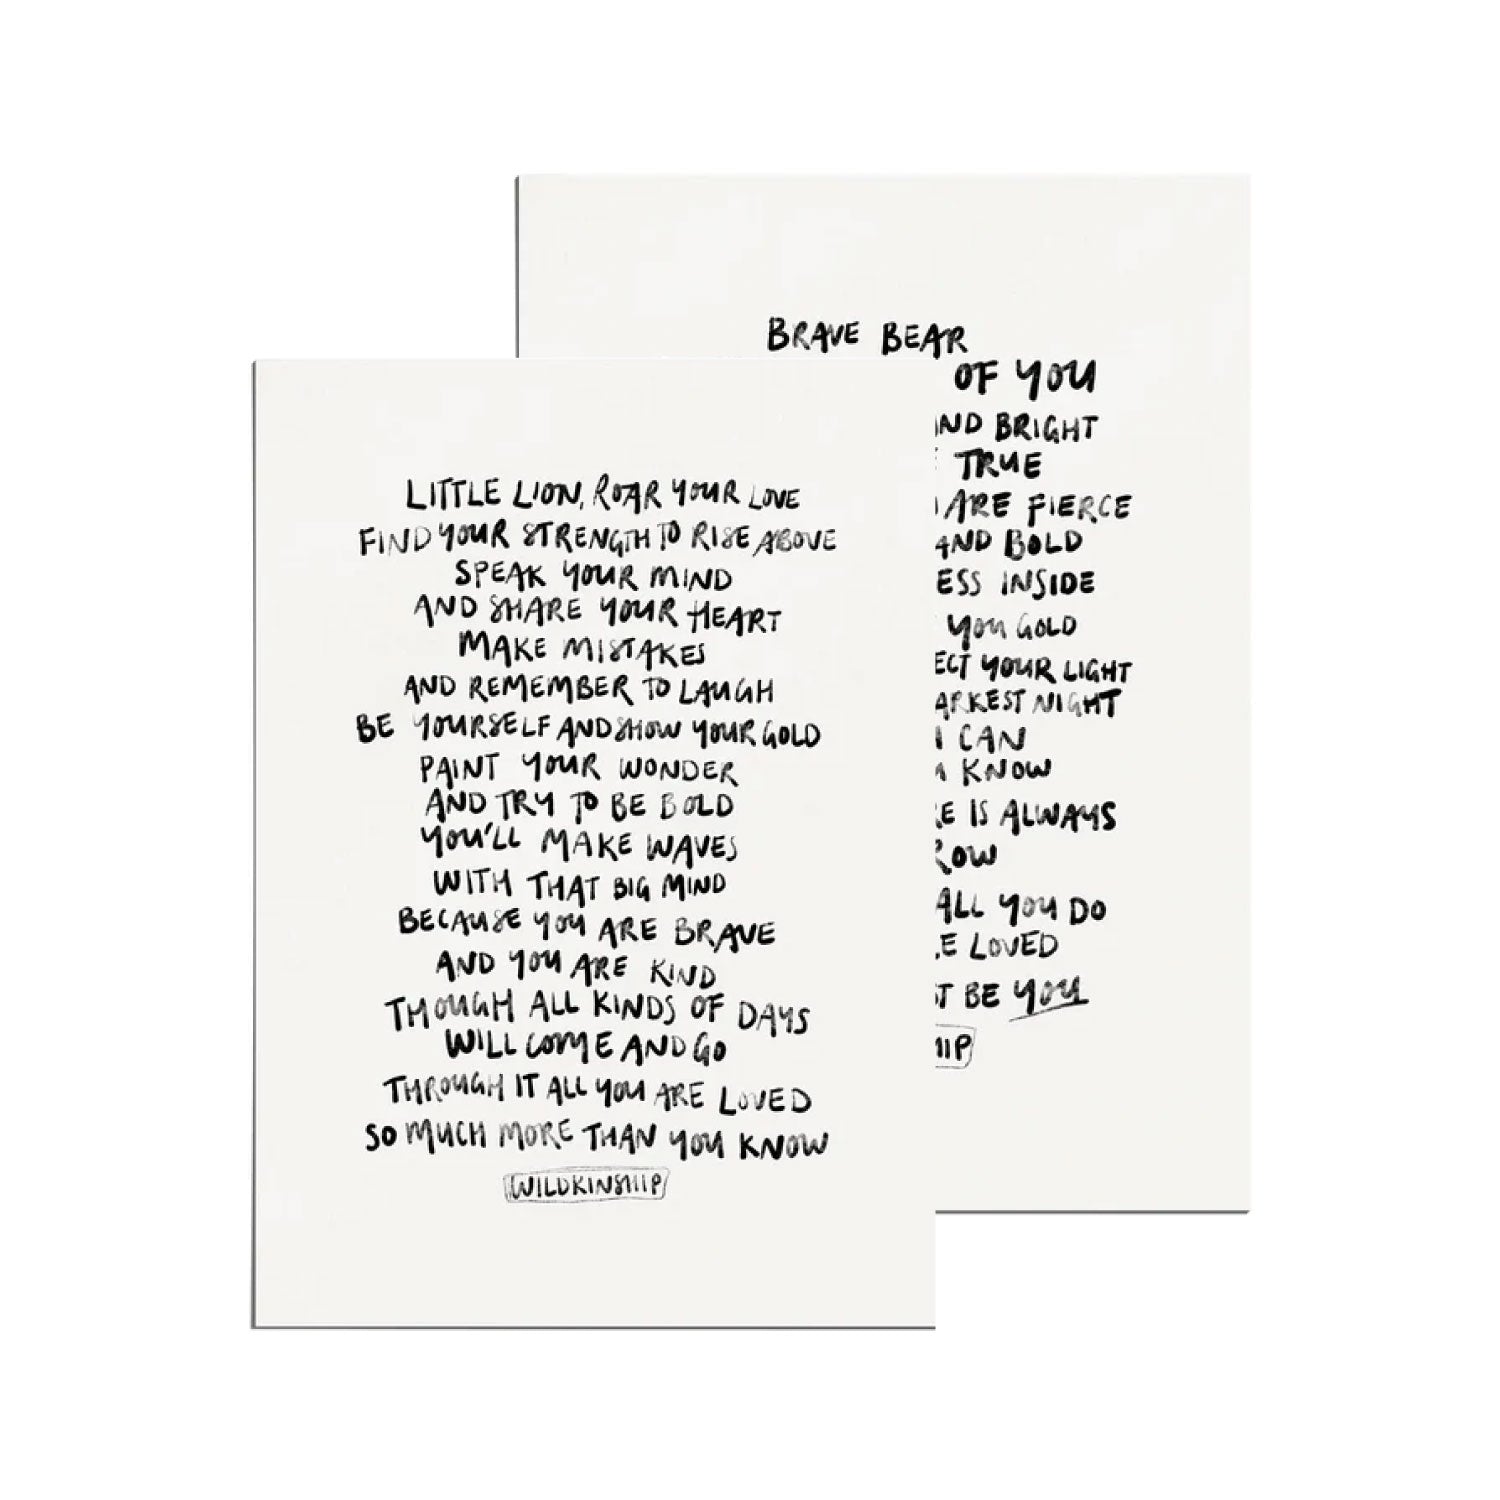 LITTLE LION, ROAR YOUR LOVE
FIND YOUR STRENGTH TO RISE ABOVE
SPEAK YOUR MIND
AND SHARE YOUR HEART
MAKE MISTAKES
AND REMEMBER TO LAUGH
BE YOURSELF AND SHOW YOUR GOLD
PAINT YOUR WONDER
AND TRY TO BE BOLD
YOU'LL MAKE WAVES
WITH THAT BIG MIND
BECAUSE YOU ARE BRAVE
AND YOU ARE KIND
THOUGH ALL KINDS OF DAYS
WILL COME AND GO
THROUGH IT ALL YOU ARE LOVED
SO MUCH MORE THAN YOU KNOW
WILDKINSHIP
BRAVE BEAR
OF YOU
AND BRIGHT
TRUE
ARE FIERCE
AND BOLD
ESS INSIDE
YOU GOLD
ECT YOUR LIGHT
ARKEST NIGHT
CAN
KNOW
E IS ALWAYS
ROW
ALL YOU DO
E LOVED
T BE YOU
HIP